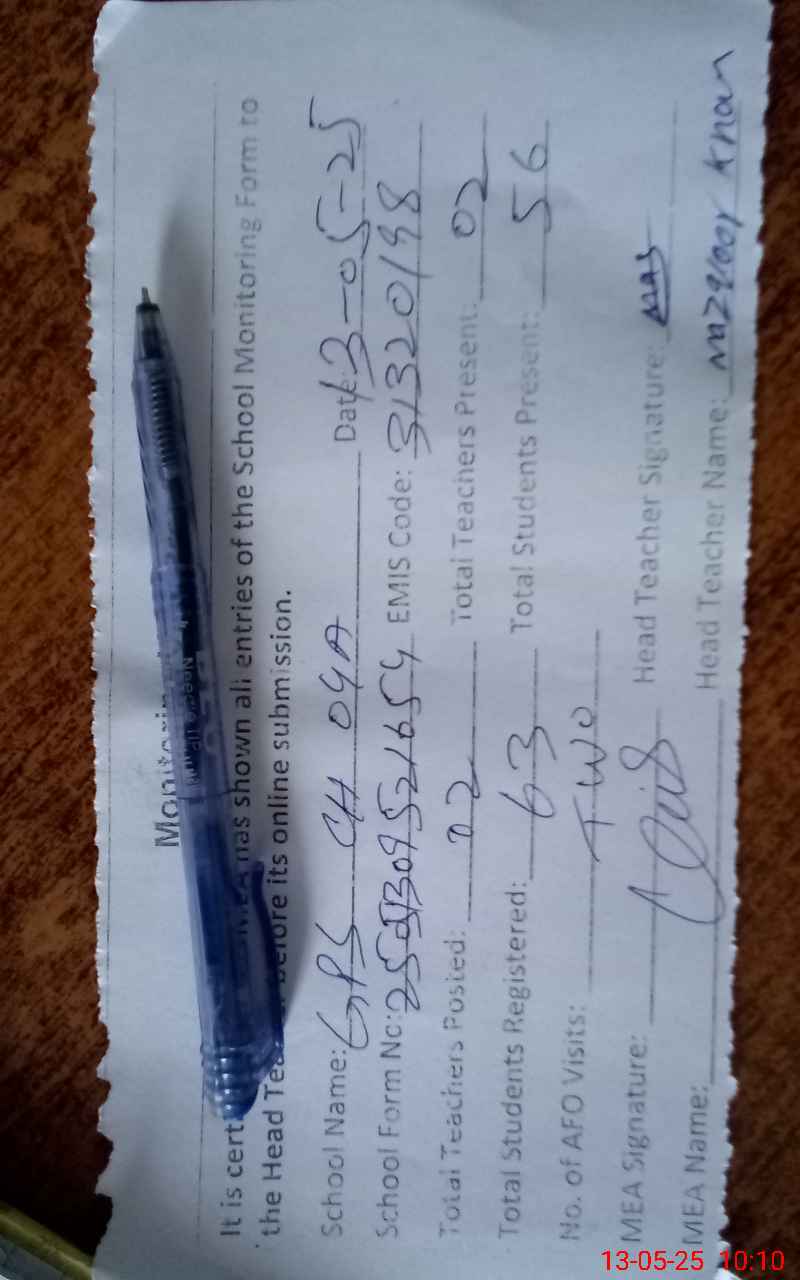 It is cert has shown all entries of the School Monitoring Form to
the Head Tea before its online submission.
School Name: GPS CH 04A Date: 13-05-25
School Form No: EMIS Code: 31320198
Total Teachers Posted: 02 Total Teachers Present: 02
Total Students Registered: 63 Total Students Present: 56
No. of AFO Visits: TWO
MEA Signature: Head Teacher Signature:
MEA Name: Head Teacher Name: Khan
13-05-25 10:10